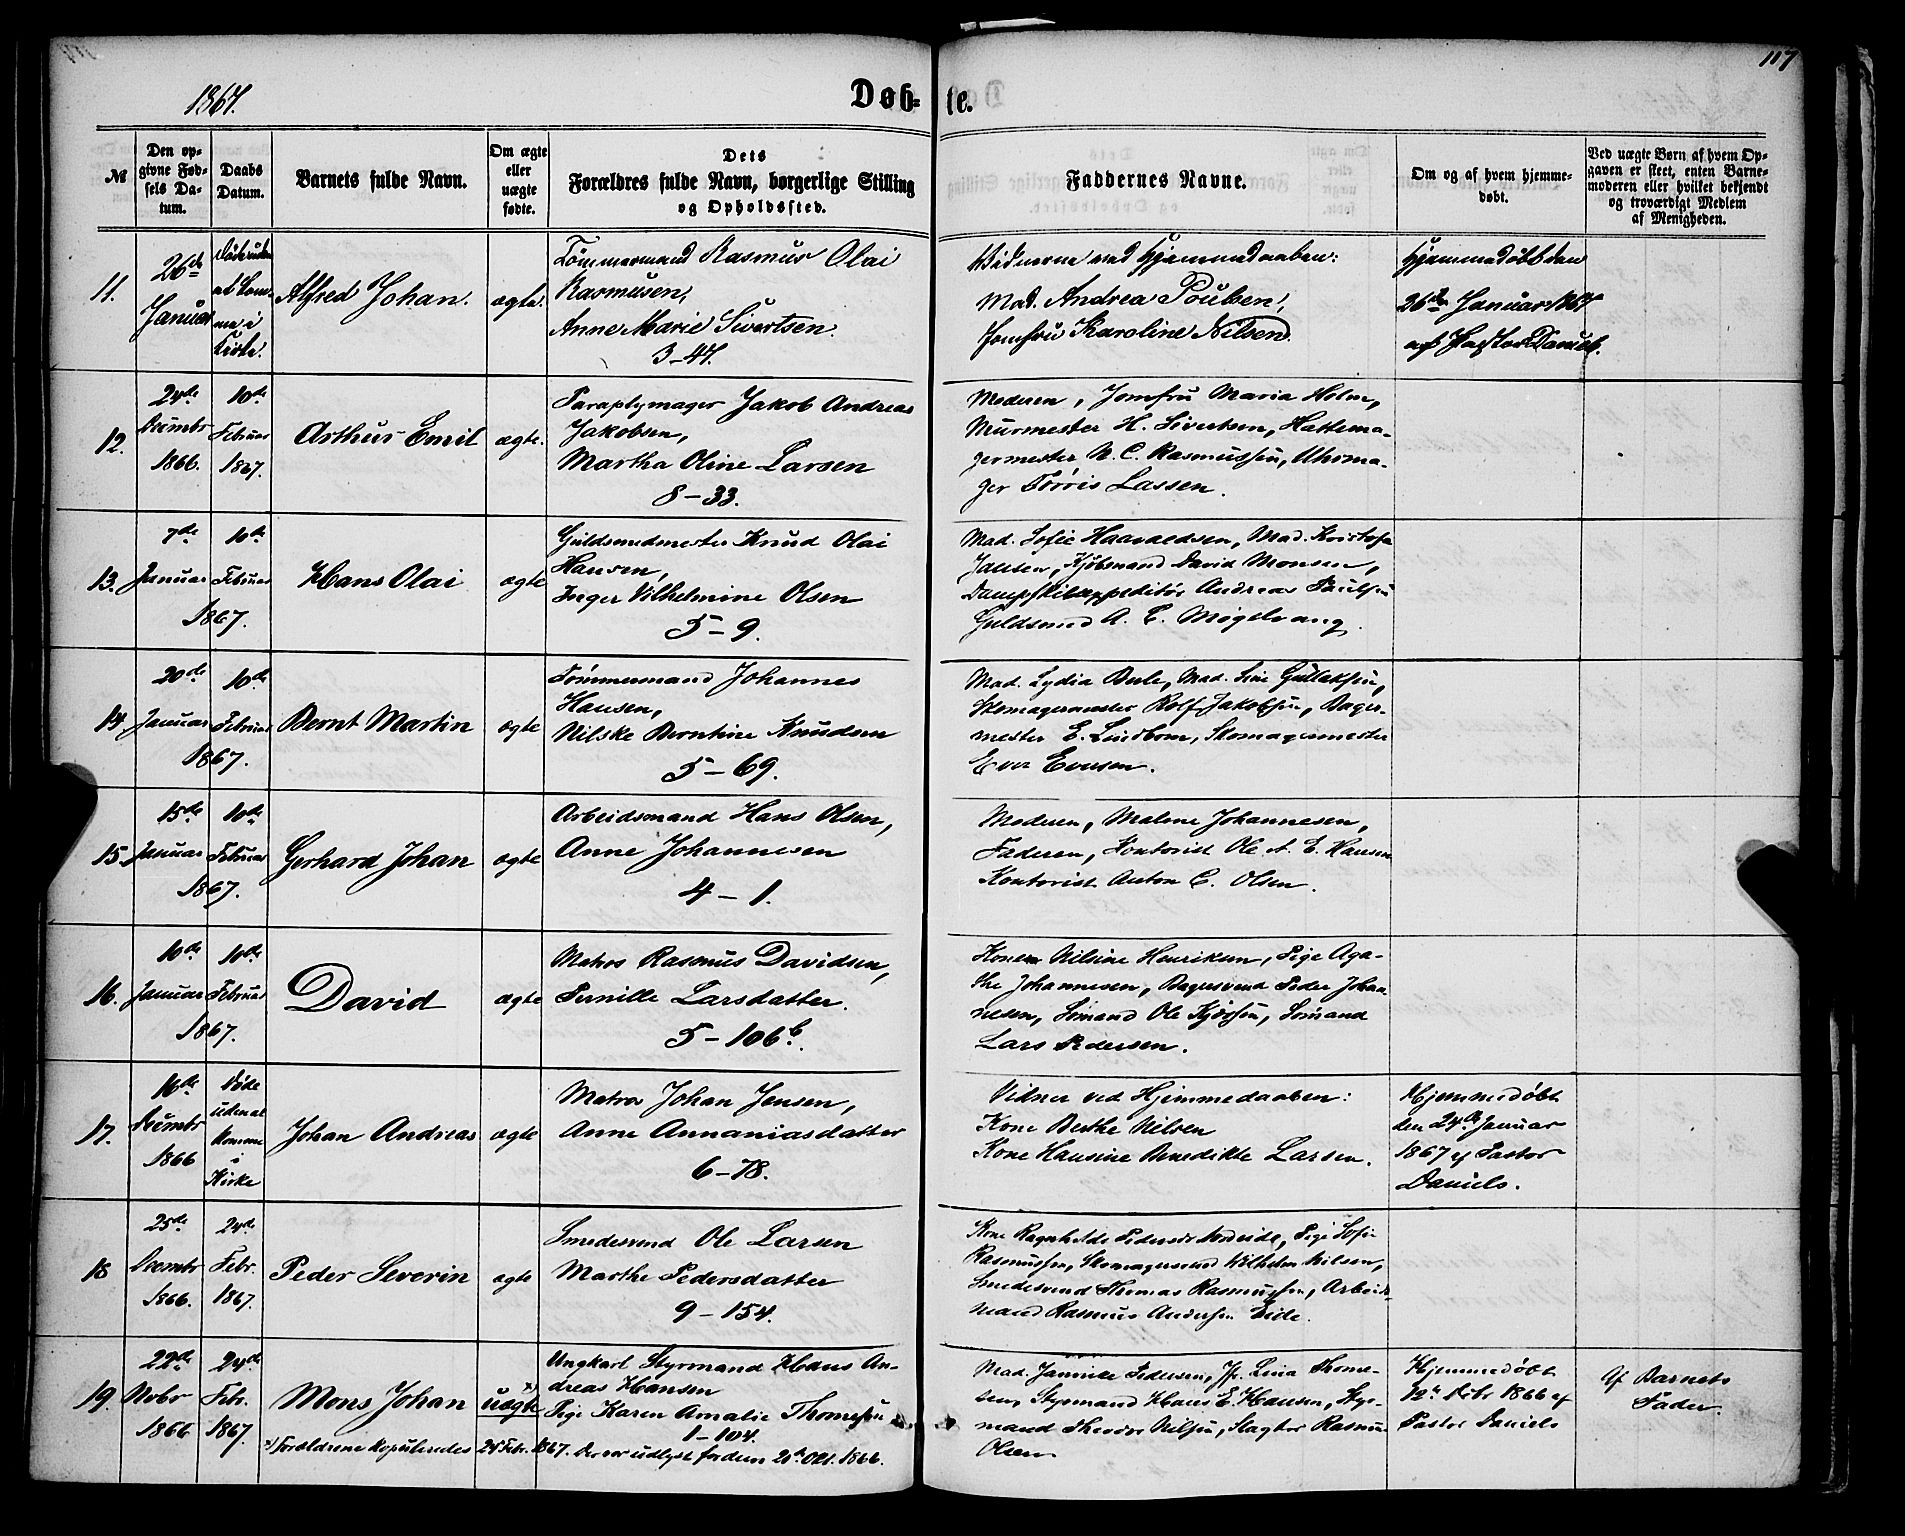 117
1867.
Døb-te.
№
Den op-
givne Fød-
sels Da-
tum.
Daabs
Datum.
Barnets fulde Navn.
Om ægte
eller
uægte
fødte.
Dets
Forældres fulde Navn, borgerlige Stilling
og Opholdssted.
Faddernes Navne.
Om og af hvem hjemme-
døbt.
Ved uægte Børn af hvem Op-
gaven er skeet, enten Barne-
moderen eller hvilket bekjendt
og troværdigt Medlem
af Menigheden.
11.
26de
Januar
Døde uden
at kom-
me i
Kirke.
Alfred Johan.
ægte.
Tømmermand Rasmus Olai
Rasmusen,
Anne Marie Sivertsen.
3-47.
Vidnerne ved Hjemmedaaben:
Mad. Andrea Poulsen,
Jomfru Karoline Nilsen.
Hjemmedøbt den
26de Januar 1867
af Pastor Daniels.
12.
24de
Decembr
1866.
10de
Februar
1867.
Arthur Emil
ægte.
Paraplymager Jakob Andreas
Jakobsen,
Martha Oline Larsen
8-33.
Moderen, Jomfru Maria Holm,
Murmester H. Sivertsen, Hattema-
germester N. C. Rasmussen, Uhrma-
ger Tørris Lassen.
13.
7de
Januar
10de
Februar
1867.
Hans Olai
ægte
Guldsmedmester Knud Olai
Hansen,
Inger Vilhelmine Olsen
5-9.
Mad. Sofie
Jansen, Kjøbmand David Monsen,
Andreas
Guldsmed A. C. Møgelvang.
14.
20de
Januar
10de
Februar
1867.
Bernt Martin
ægte
Tømmermand Johannes
Hansen,
Nilske Berntine Knudsen
5-69.
Mad. Lydia Mad.
Skomagermester Rolf Jakobsen, Bager-
mester E. Lindbom, Skomagermester
Evensen.
15.
15de
Januar
10de
Februar
1867.
Gerhard Johan
ægte
Arbeidsmand Hans Olsen,
Anne Johannesen
4-1.
Moderen, Malene Johannesen,
Faderen, Kontorist Ole A. E. Hansen
Kontorist Anton C. Olsen.
16.
10de
Januar
10de
Februar
1867.
David
ægte
Matros Rasmus Davidsen,
Pernille Larsdatter.
5-106b.
Konen Nilsine Henriksen, Pige Aga-
the Johannesen, Bagersvend Peder Johan-
nesen, Sømand Ole Sømand
Lars Pedersen.
17.
16de
Decembr
1866
Døde
uden at
komme
i
Kirke
Johan Andreas
ægte
Matros Johan Jensen,
Anne Annaniasdatter
6-78.
Vidner ved Hjemmedaaben:
Kone Berthe Nilsen
Kone Hansine Benedikte Larsen.
Hjemmedøbt
den 24de Januar
1867 af Pastor
Daniels.
18
25de
Decembr
1866.
24de
Febr.
1867.
Peder Severin
ægte
Smedesvend Ole Larsen
Marthe Pedersdatter
9-154.
Kone Ragnhilde Pedersdr Pige Sofie
Rasmussen, Skomagersvend Vilhelm Nilsen,
Smedesvend Thomas Rasmussen, Arbeids-
mand Rasmus Andersen Eide.
19.
22de
Novbr
1866
24de
Febr.
1867.
Mons Johan
uægte x)
Ungkarl Styrmand Hans An-
dreas Hansen
Pige Karen Amalie Thomesen
1-104.
Mad. Jannike Pedersen, Jfr. Lina Thome-
sen, Styrmand Hans E. Hansen, Styr-
mand Theodor Nilsen, Slagter Rasmus
Olsen
Hjemmedøbt
12te Debr 1866 af
Pastor Daniels
Af Barnets
Fader.
x) Forældrene kopuleredes 24 Febr. 1867. De var udlyst fordum 21de Okt. 1866.